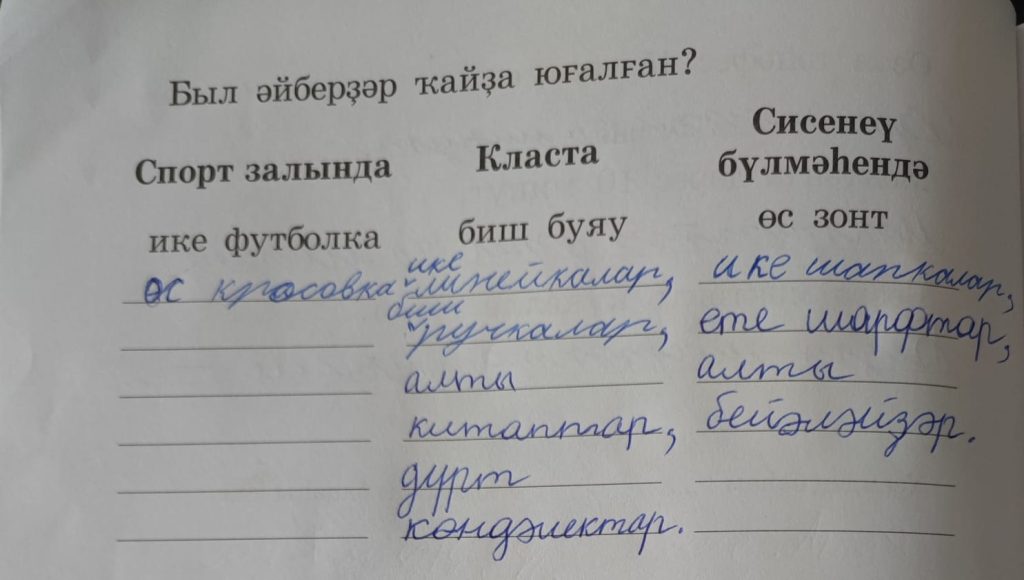 Был әйберҙәр ҡайҙа юғалған?
Спорт залында
ике футболка
өс кросовка
Класта
биш буяу
ике
линейкалар,
биш
ручкалар,
алты
китаптар,
дүрт
көндәлектар.
Сисенеү
бүлмәһендә
өс зонт
ике шапкалар,
ете шарфтар,
алты
бейәләйҙәр.